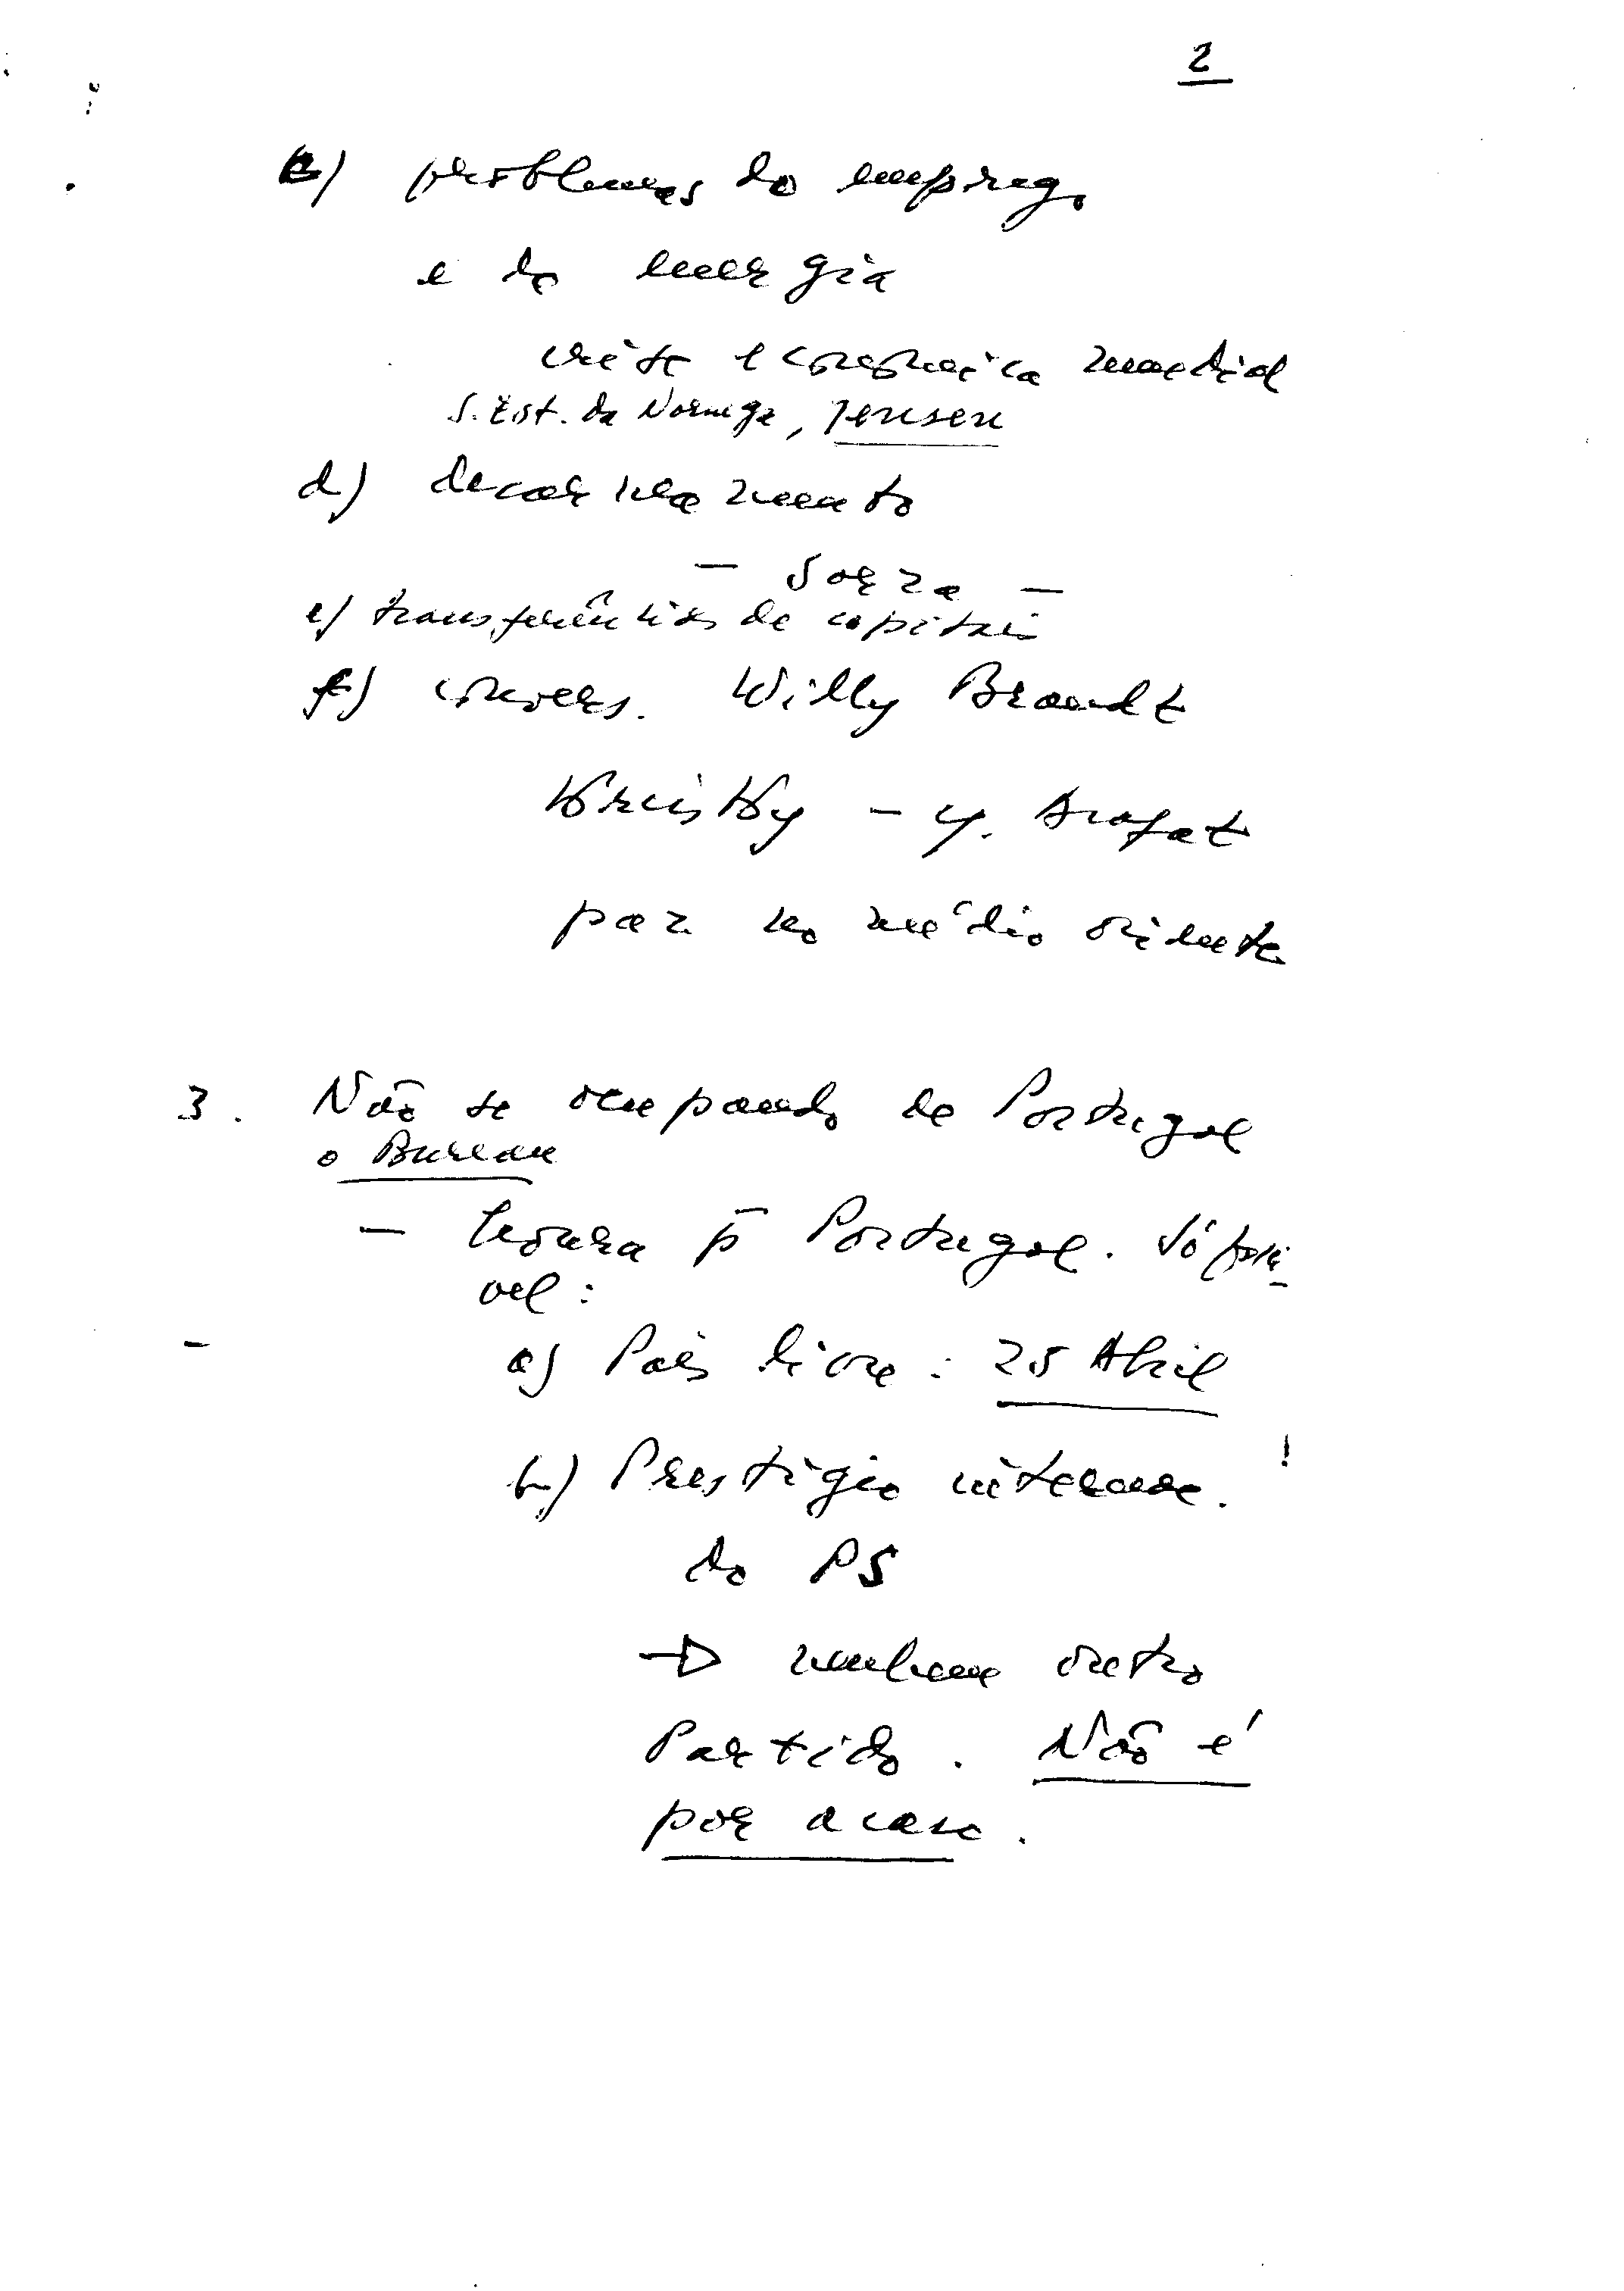 2
c) problemas do emprego
e da energia
crise economica mundial
S. Est. da Noruega, Jensen
d) desarmamento
- Sorza -
e) transferências de capitais
f) convers. Willy Brandt
Kreisky - Y. Arafat
paz no médio oriente
3. Não se ocupando de Portugal
o Bureau
- honra p Portugal. Só possí-
vel:
a) País livre : 25 Abril
b) Prestigio internac. !
do PS
→ nenhum outro
Partido. Não é
por acaso.